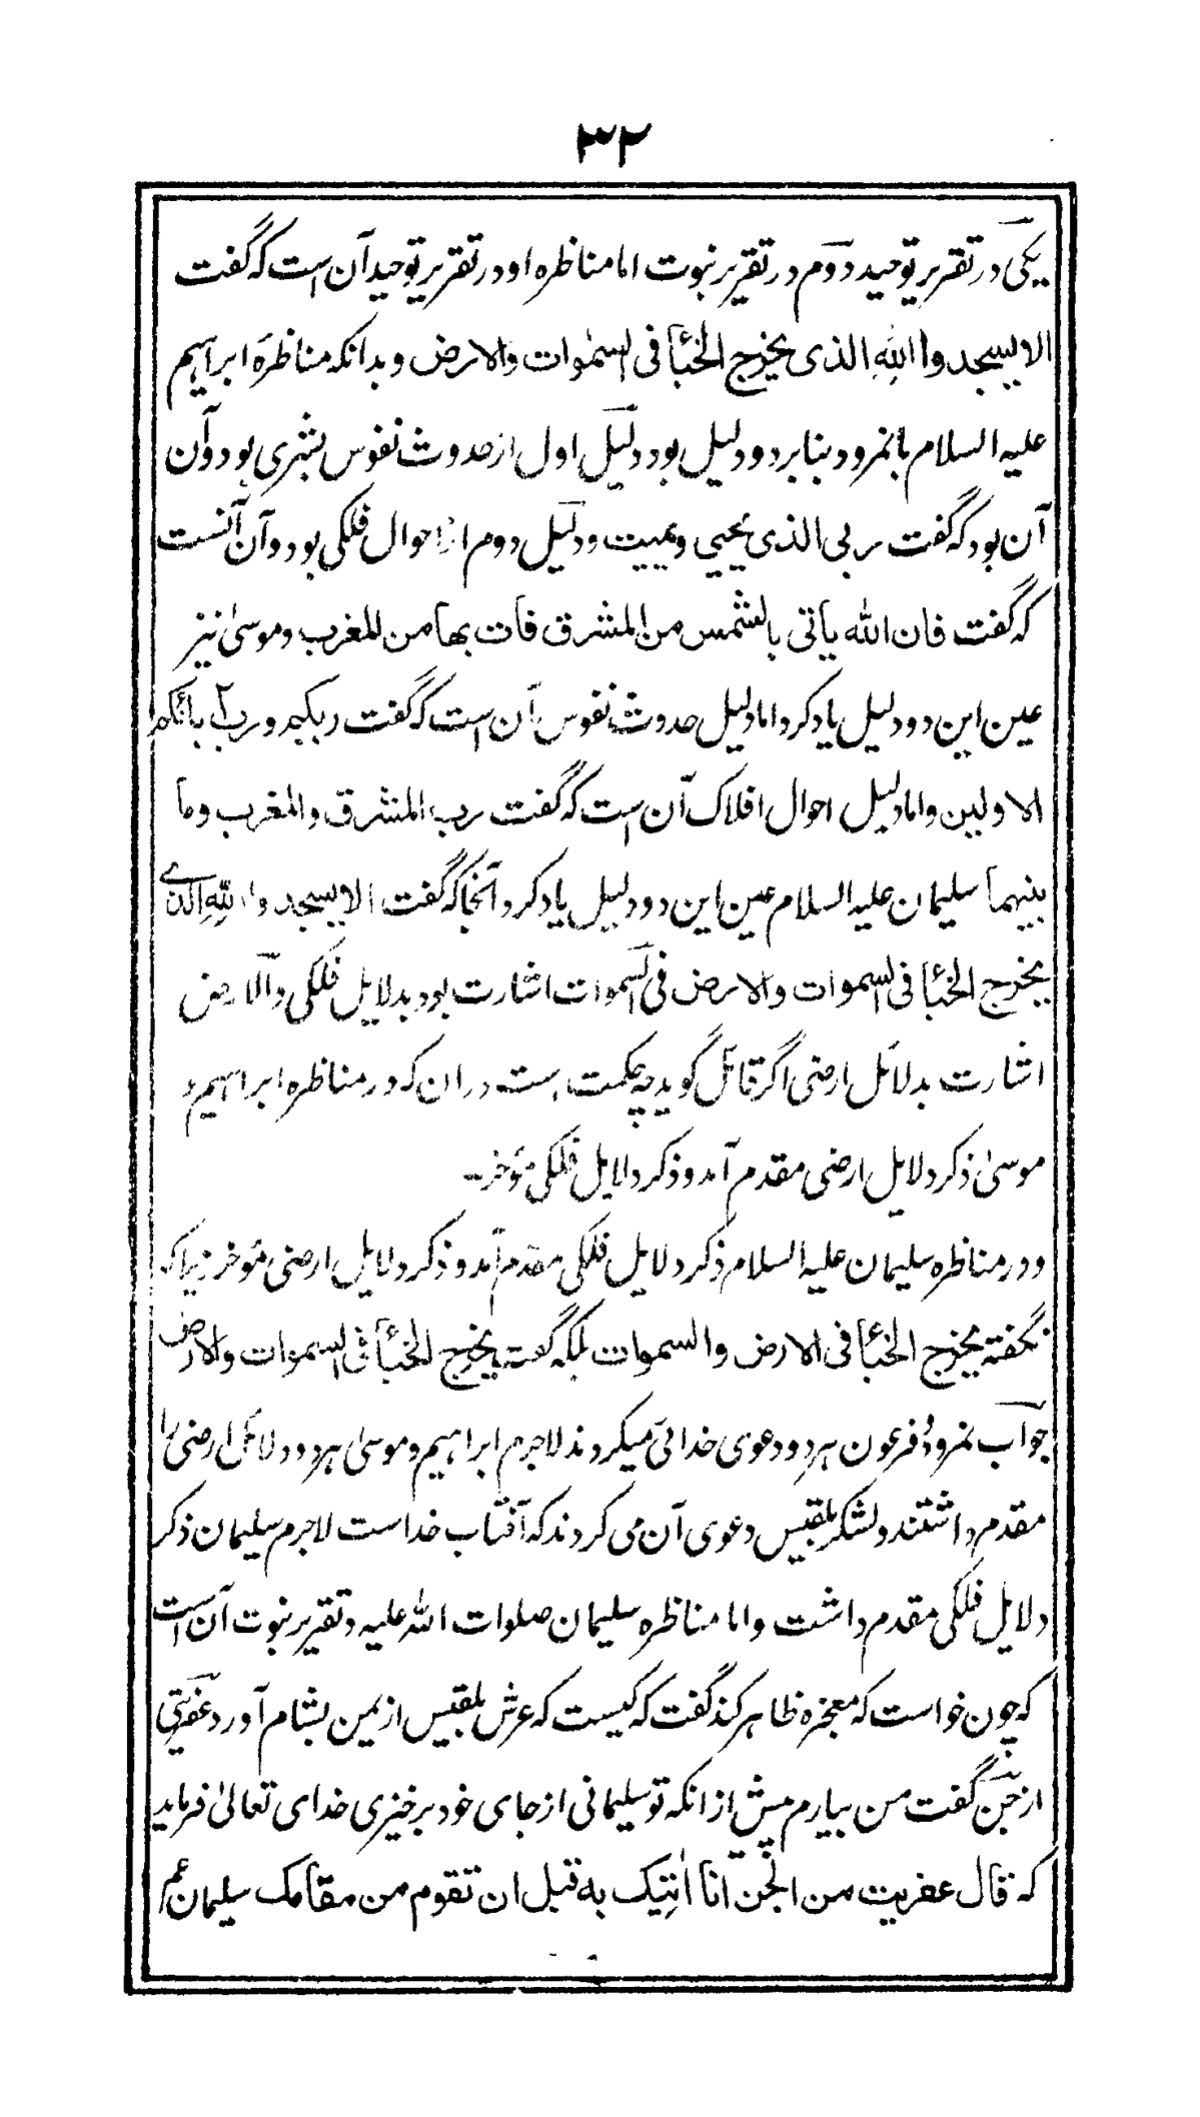 ۳۲
یکی در تقریر توحید دوم در تقریر نبوت اما مناظره او در تقریر توحید آن است که گفت
الا یسجدوا اللهِ الذی یخرج الخبأ فی السمٰوات والارض و بدانکه مناظرهٔ ابراہیم
علیہ السلام بانمرود بنا بر دو دلیل بود دلیل اول از حدوث نفوس بشری بود و آن
آن بود که گفت ربی الذی یحیی و یمیت و دلیل دوم از احوال فلکی بود و آن آنست
که گفت فان الله یأتی بالشمس من المشرق فات بها من المغرب و موسیٰ نیز
عین این دو دلیل یاد کرد اما دلیل حدوث نفوس آن است که گفت ربکم و رب آبائکم
الاولین و اما دلیل احوال افلاک آن است که گفت رب المشرق والمغرب وما
بینهما سلیمان علیہ السلام عین این دو دلیل یاد کرد آنجا که گفت الا یسجدوا للهِ الذے
یخرج الخبأ فی السموات والارض فی السموات اشارت بود بدلایل فلکی و الارض
اشارت بدلائل ارضی اگر قائل گوید چہ حکمت است دران که در مناظره ابراہیم و
موسیٰ ذکر دلایل ارضی مقدم آمد و ذکر دلایل فلکی مؤخر۔
و در مناظره سلیمان علیہ السلام ذکر دلایل فلکی مقدم آمد و ذکر دلایل ارضی مؤخر زیراکہ
نگفتہ یخرج الخبأ فی الارض والسموات بلکہ گفت یخرج الخبأ فی السموات والارض
جواب نمرود و فرعون ہر دو دعوی خدائی میکردند لاجرم ابراہیم و موسیٰ ہر دو دلائل ارضی را
مقدم داشتند و لشکر بلقیس دعوی آن می کردند کہ آفتاب خداست لاجرم سلیمان ذکر
دلایل فلکی مقدم داشت و اما مناظره سلیمان صلوات الله علیہ در تقریر نبوت آن است
کہ چون خواست کہ معجزه ظاہر کند گفت کہ کیست کہ عرش بلقیس از یمن بشام آورد عفریتی
از جن گفت من بیارم پیش از انکہ تو سلیمانی از جای خود برخیزی خدای تعالیٰ فرماید
کہ قال عفریت من الجن انا اٰتیک بہ قبل ان تقوم من مقامک سلیمان عم